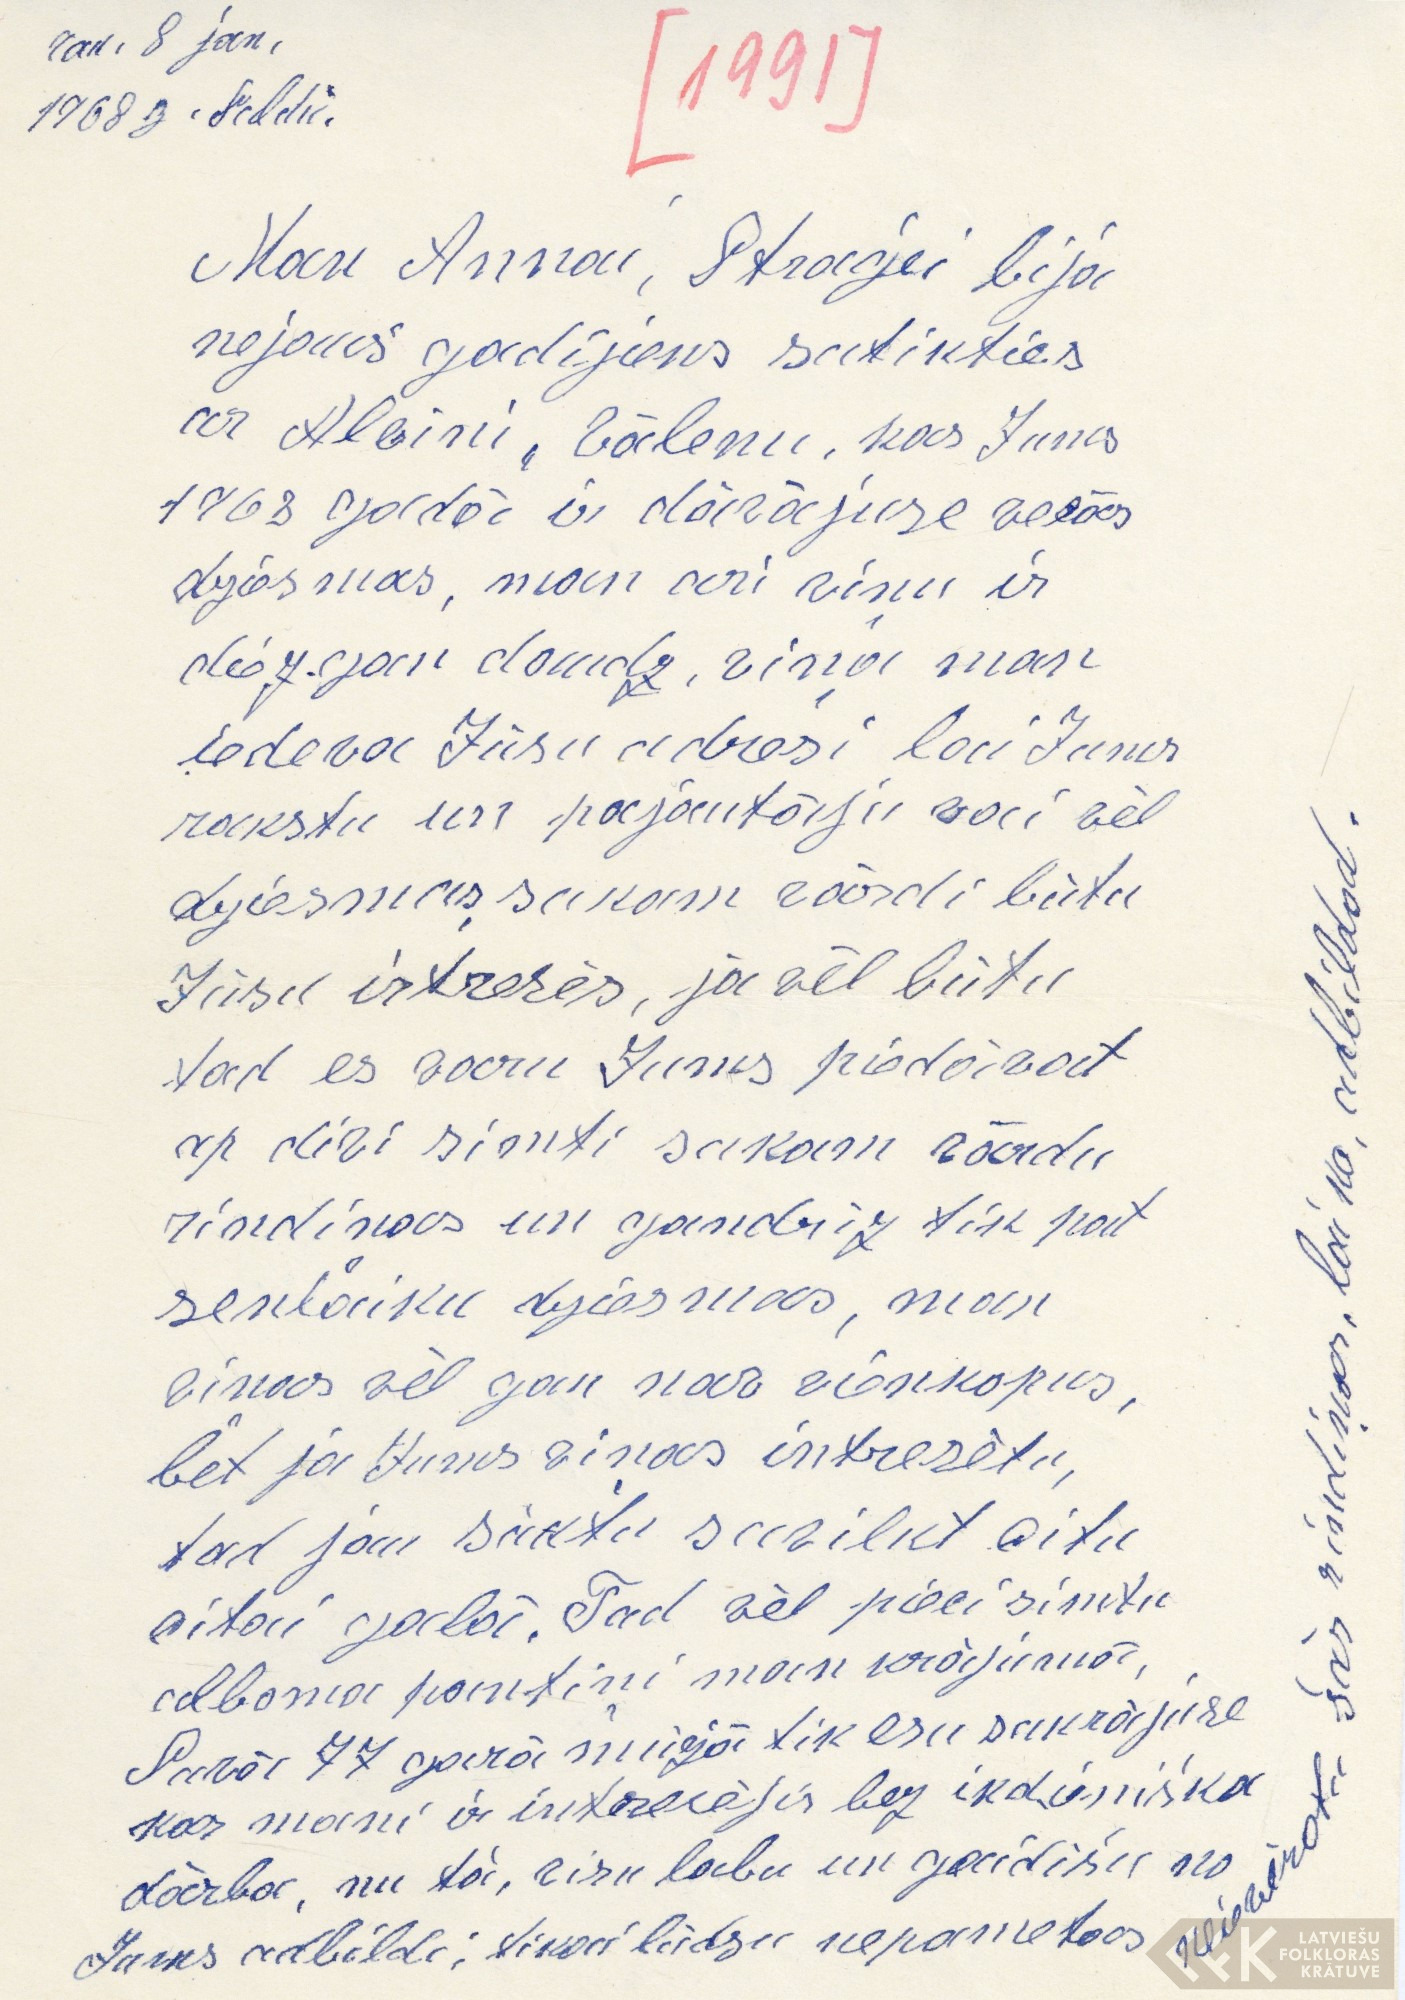 rak. 8 jan.
1968 g. Saldū.
[1991]
Man Annai, Straģei bija
nejauš gadījiens satikties
ar Alvini, Vālenu, kas Jums
1968 gadā ir dāvājuse vecās
dziesmas, man ari viņu ir
diezgan daudz, viņa man
iedeva Jūsu adresi lai Jums
rakstu un pajautāju vai vēl
dziesmas, sakam vārdi būtu
Jūsu intresēs, ja vēl būtu
tad es varu Jums piedāvat
ap divi simti sakam vārdu
rindinas un gandriz tik pat
senlaiku dziesmas, man
vinas vēl gan nav vienkopus,
bet ja Jums viņas intresētu,
tad jau sāktu savilkt vitu
vitai galā. Tad vēl pieci simtu
alboma pantiņi man krājumā,
Savā 77 garā mūžā tik esu sakrājuse
kas mani ir intresējis bez ikdieniška
dārba, nu tā, visu labu un gaidišu no
Jums adbildi, tikai lūdzu nepametas
neievērotu šās rindiņas, lai ko, adbildad.
LATVIEŠU
FOLKLORAS
KRĀTUVE